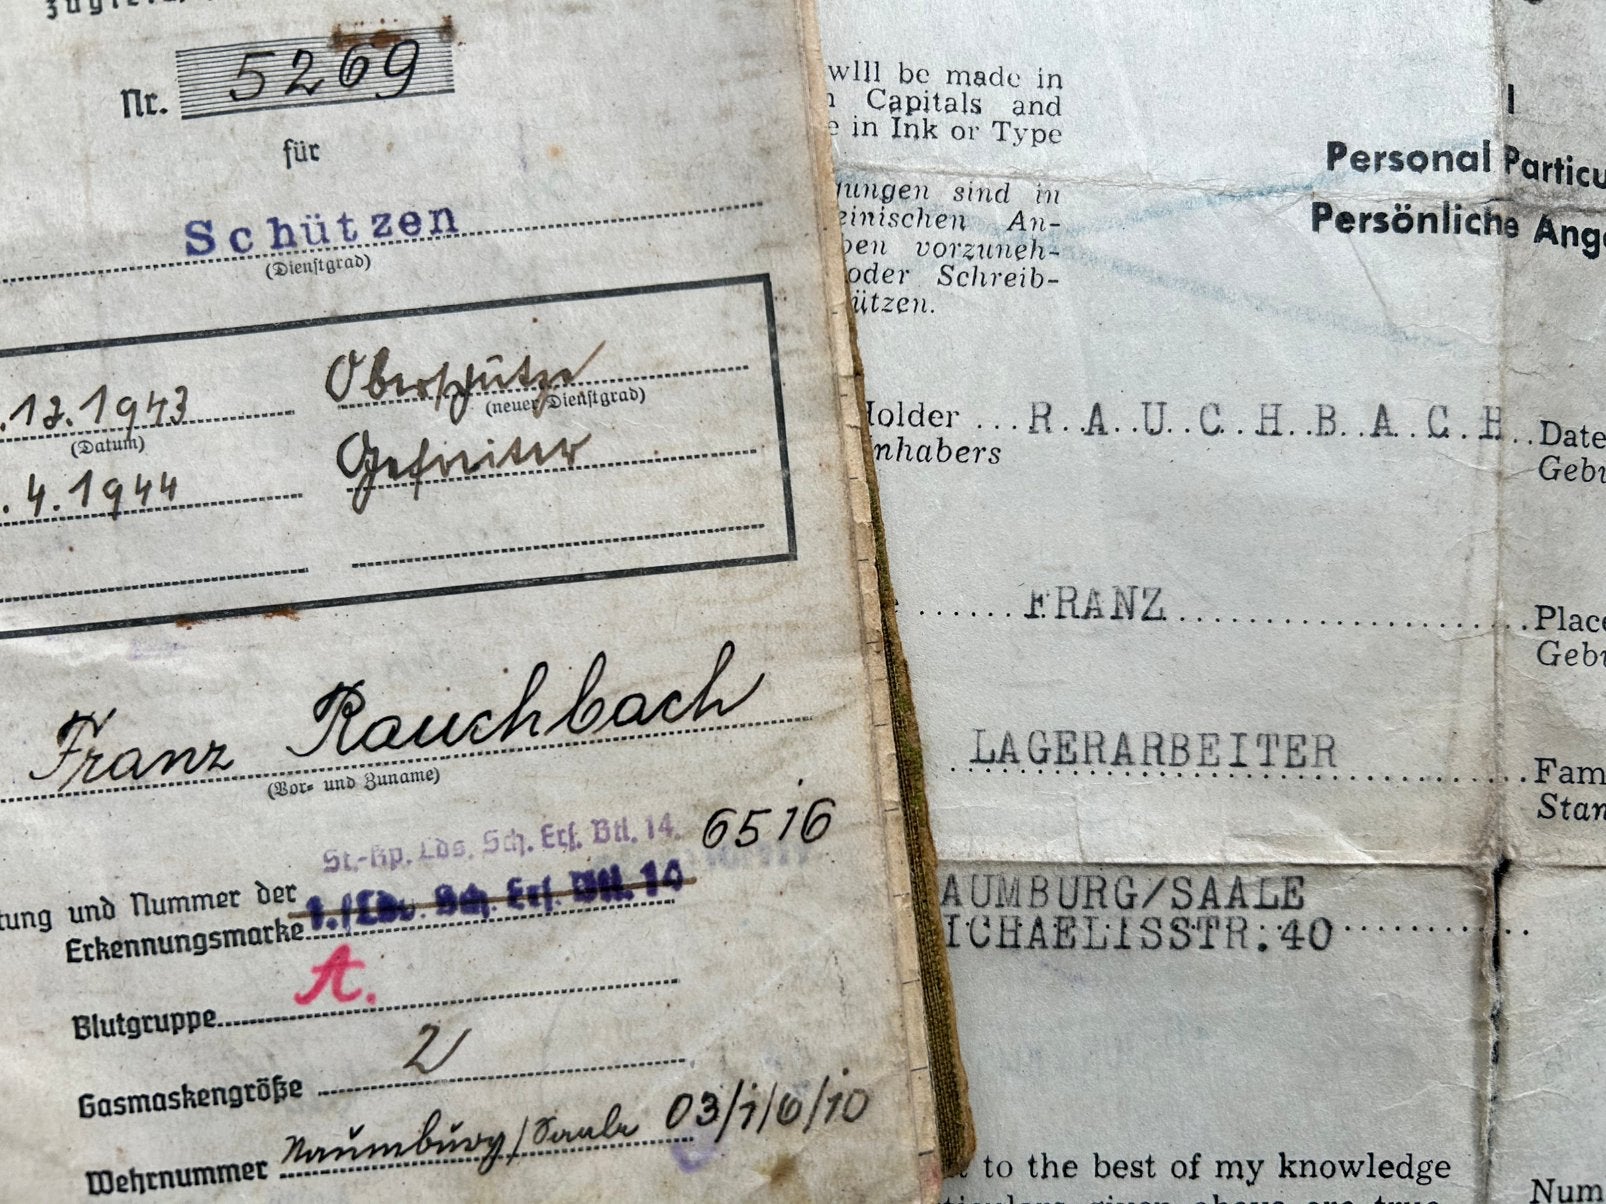 Nr. 5269
für
Schützen
(Dienstgrad)
.12.1943 Oberschütze
(Datum) (neuer Dienstgrad)
.4.1944 Gefreiter
Franz Rauchbach
(Vor- und Zuname)
St.-Kp. Lds. Sch. Ers. Btl. 14. 6516
tung und Nummer der
Erkennungsmarke 1./Lds. Sch. Ers. Btl. 14
Blutgruppe A.
Gasmaskengröße 2
Wehrnummer Naumburg/Saale 03/1/6/10
will be made in
Capitals and
e in Ink or Type
gungen sind in
einischen An-
ben vorzuneh-
oder Schreib-
ützen.
I
Personal Particu
Persönliche Ang
Holder ...R.A.U.C.H.B.A.C.H.. Date
nhabers Gebu
......FRANZ...... Place
Gebu
LAGERARBEITER Fam
Stan
AUMBURG/SAALE
ICHAELISSTR.40
to the best of my knowledge
ticulars given above are true
Num